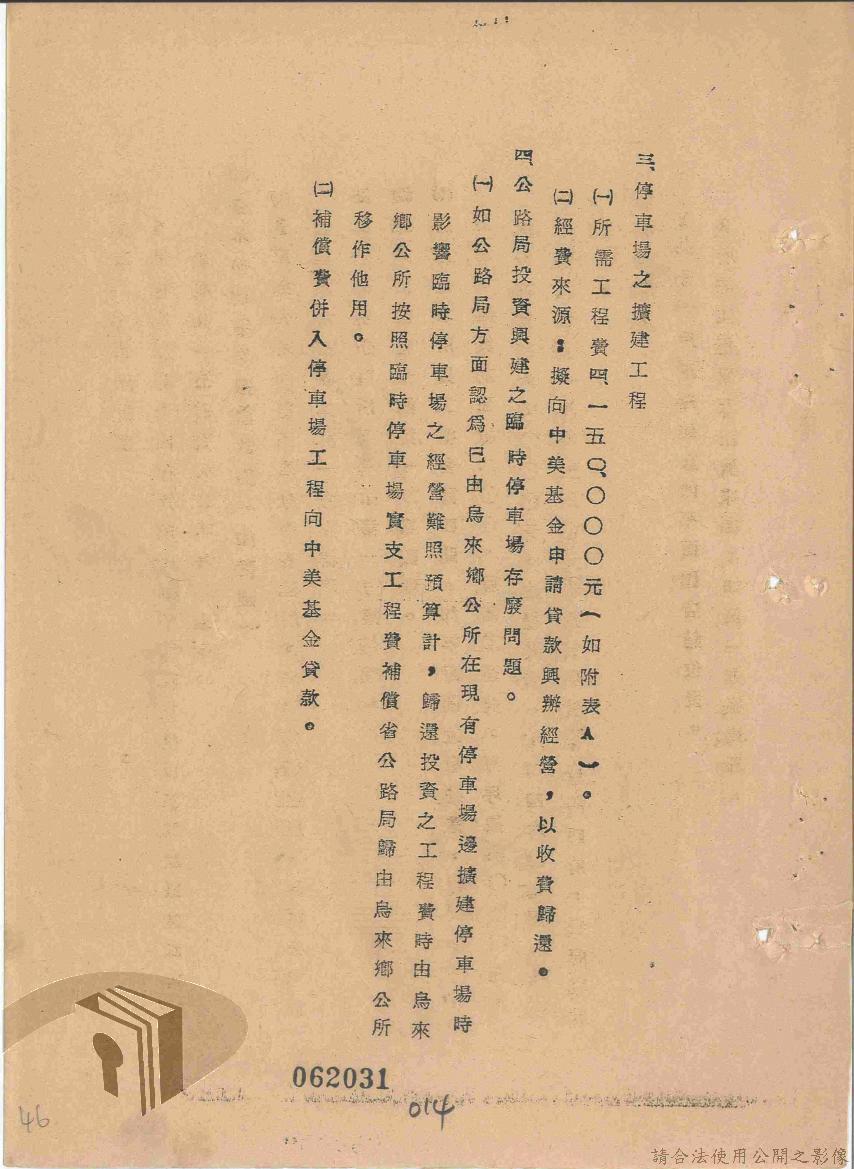 三、停車場之擴建工程
㈠所需工程費四、一五〇、〇〇〇元(如附表A)。
㈡經費來源：擬向中美基金申請貸款興辦經營，以收費歸還。
四、公路局投資興建之臨時停車場存廢問題。
㈠如公路局方面認為已由烏來鄉公所在現有停車場邊擴建停車場時
影響臨時停車場之經營難照預算計，歸還投資之工程費時由烏來
鄉公所按照臨時停車場實支工程費補償省公路局歸由烏來鄉公所
移作他用。
㈡補償費併入停車場工程向中美基金貸款。
062031
014
46
請合法使用公開之影像